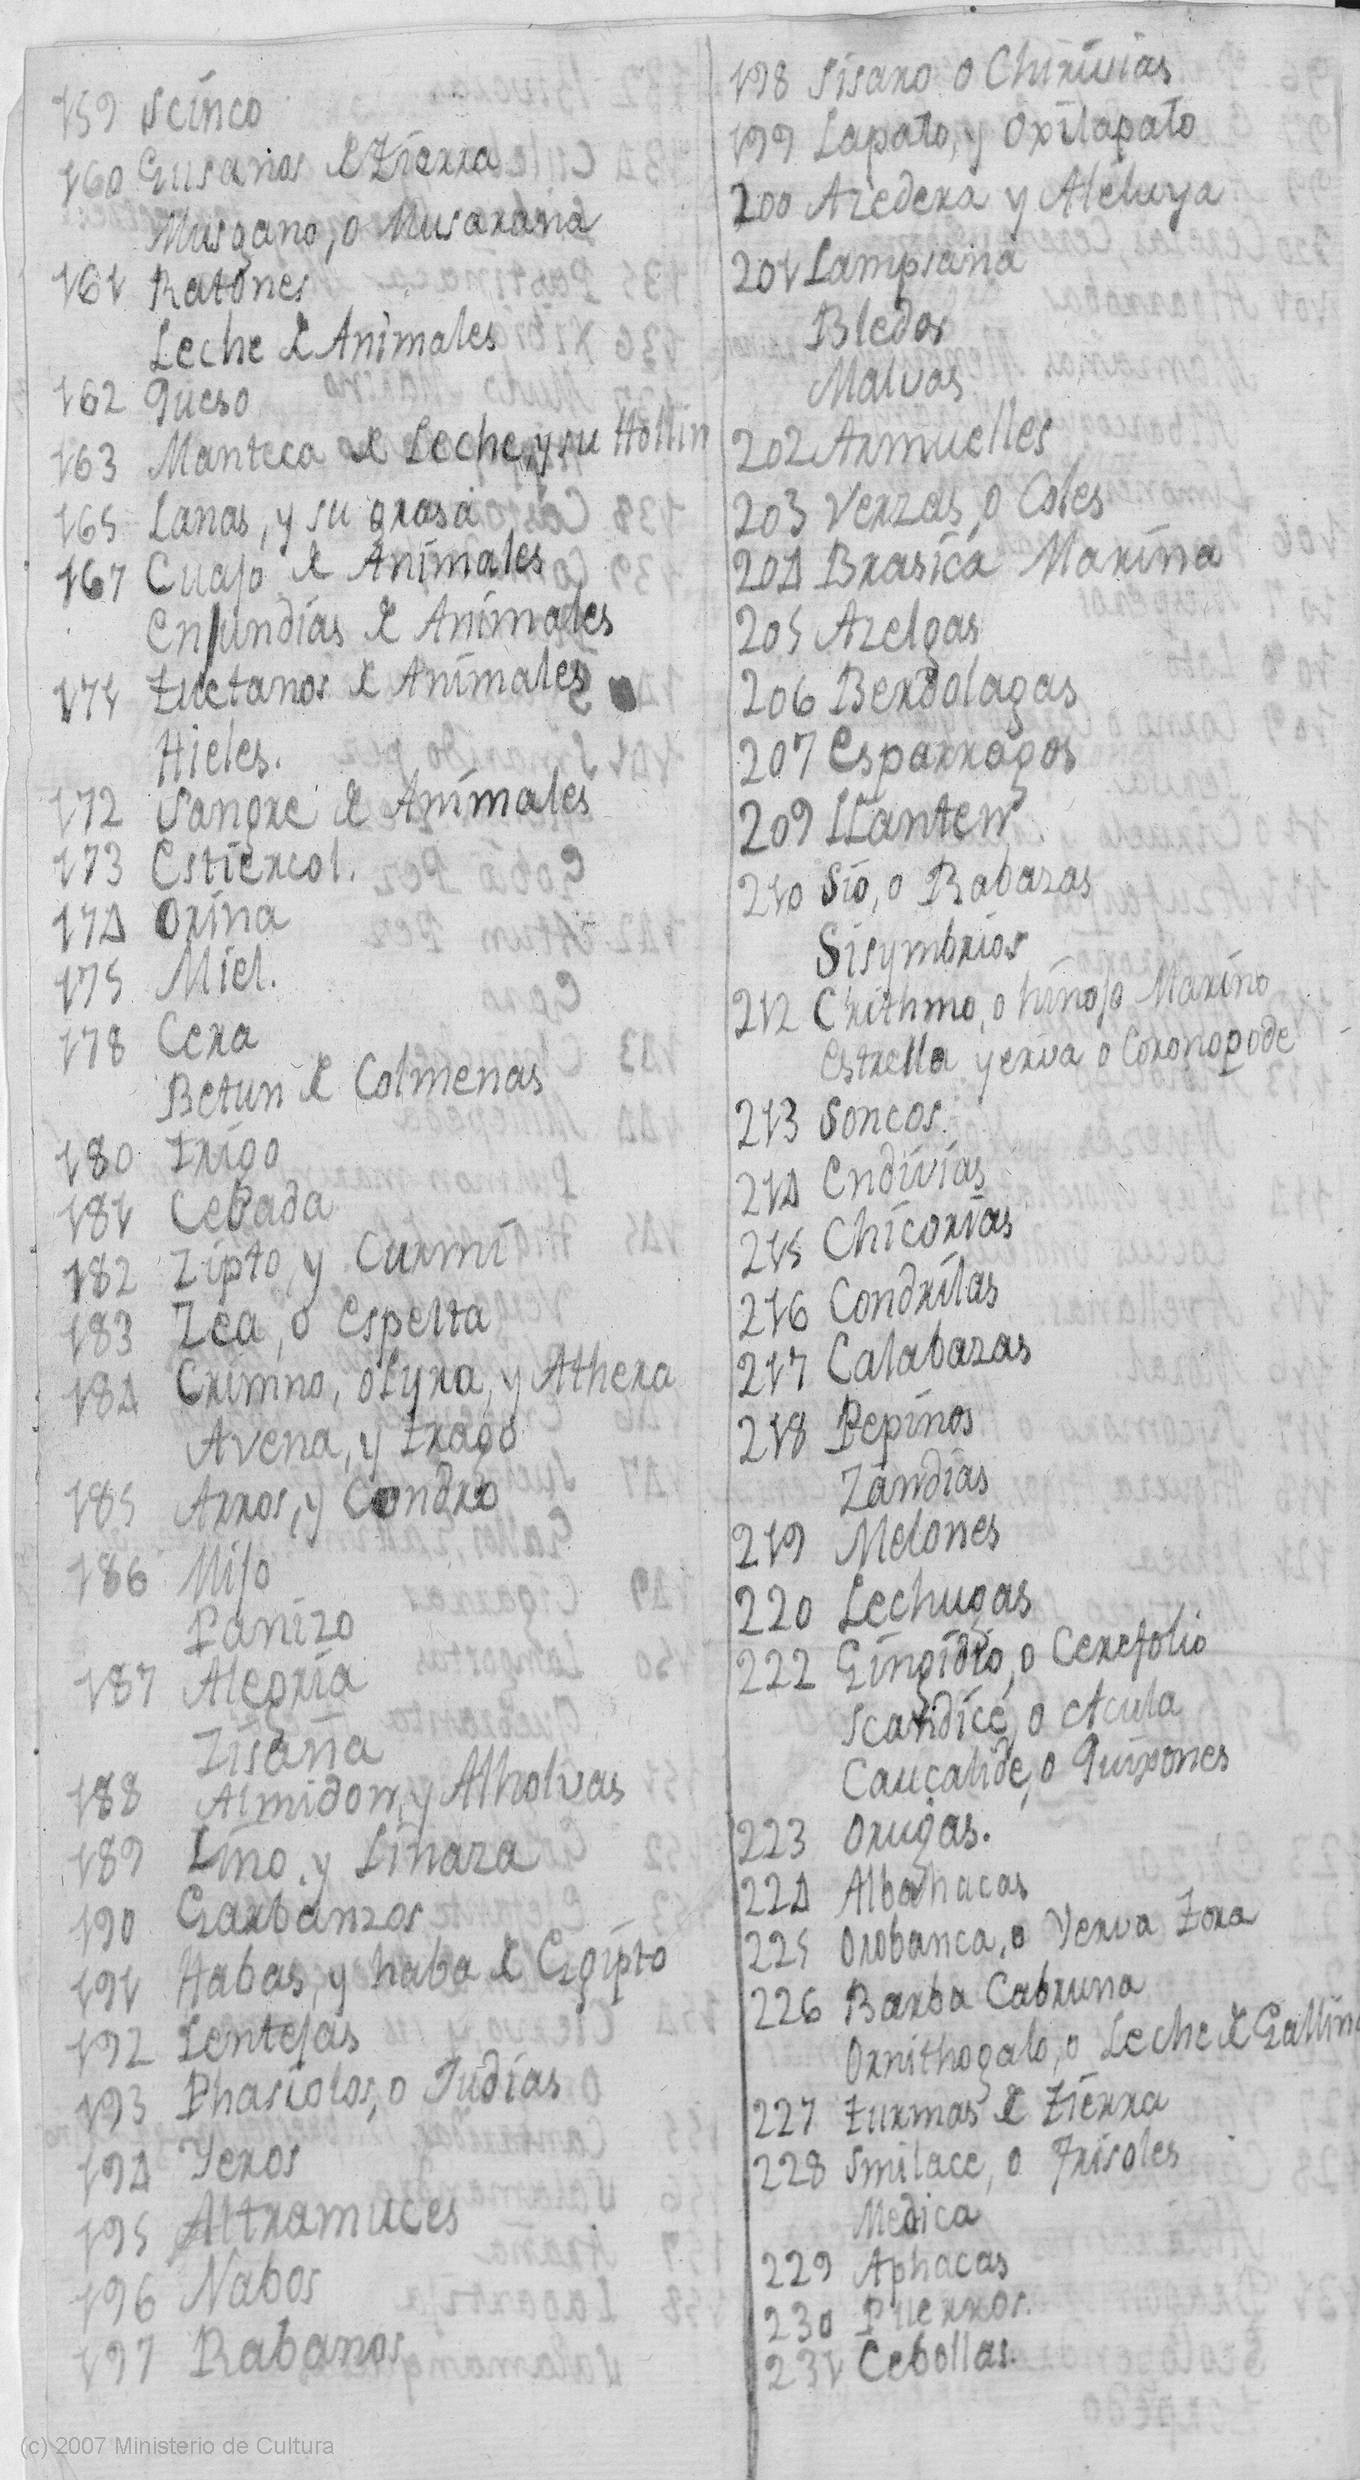 159 Scinco
160 Gusanos de Tierra
Musgano, o Musaraña
161 Ratones
Leche de Animales
162 Queso
163 Manteca de Leche, y su Hollin
165 Lanas, y su grasa
167 Cuajo de Animales
Enjundias de Animales
171 Tuetanos de Animales
Hieles.
172 Sangre de Animales
173 Estiercol.
174 Orina
175 Miel.
178 Cera
Betun de Colmenas
180 Trigo
181 Cebada
182 Zipto, y Curmi
183 Zea, o Espelta
184 Crimno, olyra, y Athera
Avena, y trago
185 Arros, y Condro
186 Mijo
Panizo
187 Alegria
Zisaña
188 Almidon, y Alholvas
189 Lino, y Linaza
190 Garbanzos
191 Habas, y haba de Egipto
192 Lentejas
193 Phasiolos, o Judias
194 Yeros
195 Altramuces
196 Nabos
197 Rabanos
198 Sisaro o Chirivias
199 Lapato, y Oxilapato
200 Azedera y Aleluya
201 Lampsana
Bledos
Malvas
202 Armuelles
203 Verzas, o Coles
204 Brasica Marina
205 Azelgas
206 Berdolagas
207 Esparragos
209 LLanten
210 Sio, o Rabazas
Sisymbrios
212 Chrithmo, o hinojo Marino
Estrella yerva o Coronopode
213 Soncos.
214 Endivias
215 Chicorias
216 Condrilas
217 Calabazas
218 Pepinos
Zandias
219 Melones
220 Lechugas
222 Gingidio, o Cerefolio
Scandice, o Acula
Caucalide, o Quixones
223 Orugas.
224 Albahacas
225 Orobanca, o Yerva Tora
226 Barba Cabruna
Ornithogalo, o Leche de Gallina
227 Turmas de Tierra
228 Smilace, o Frisoles
Medica
229 Aphacas
230 Puerros.
231 Cebollas.
(c) 2007 Ministerio de Cultura